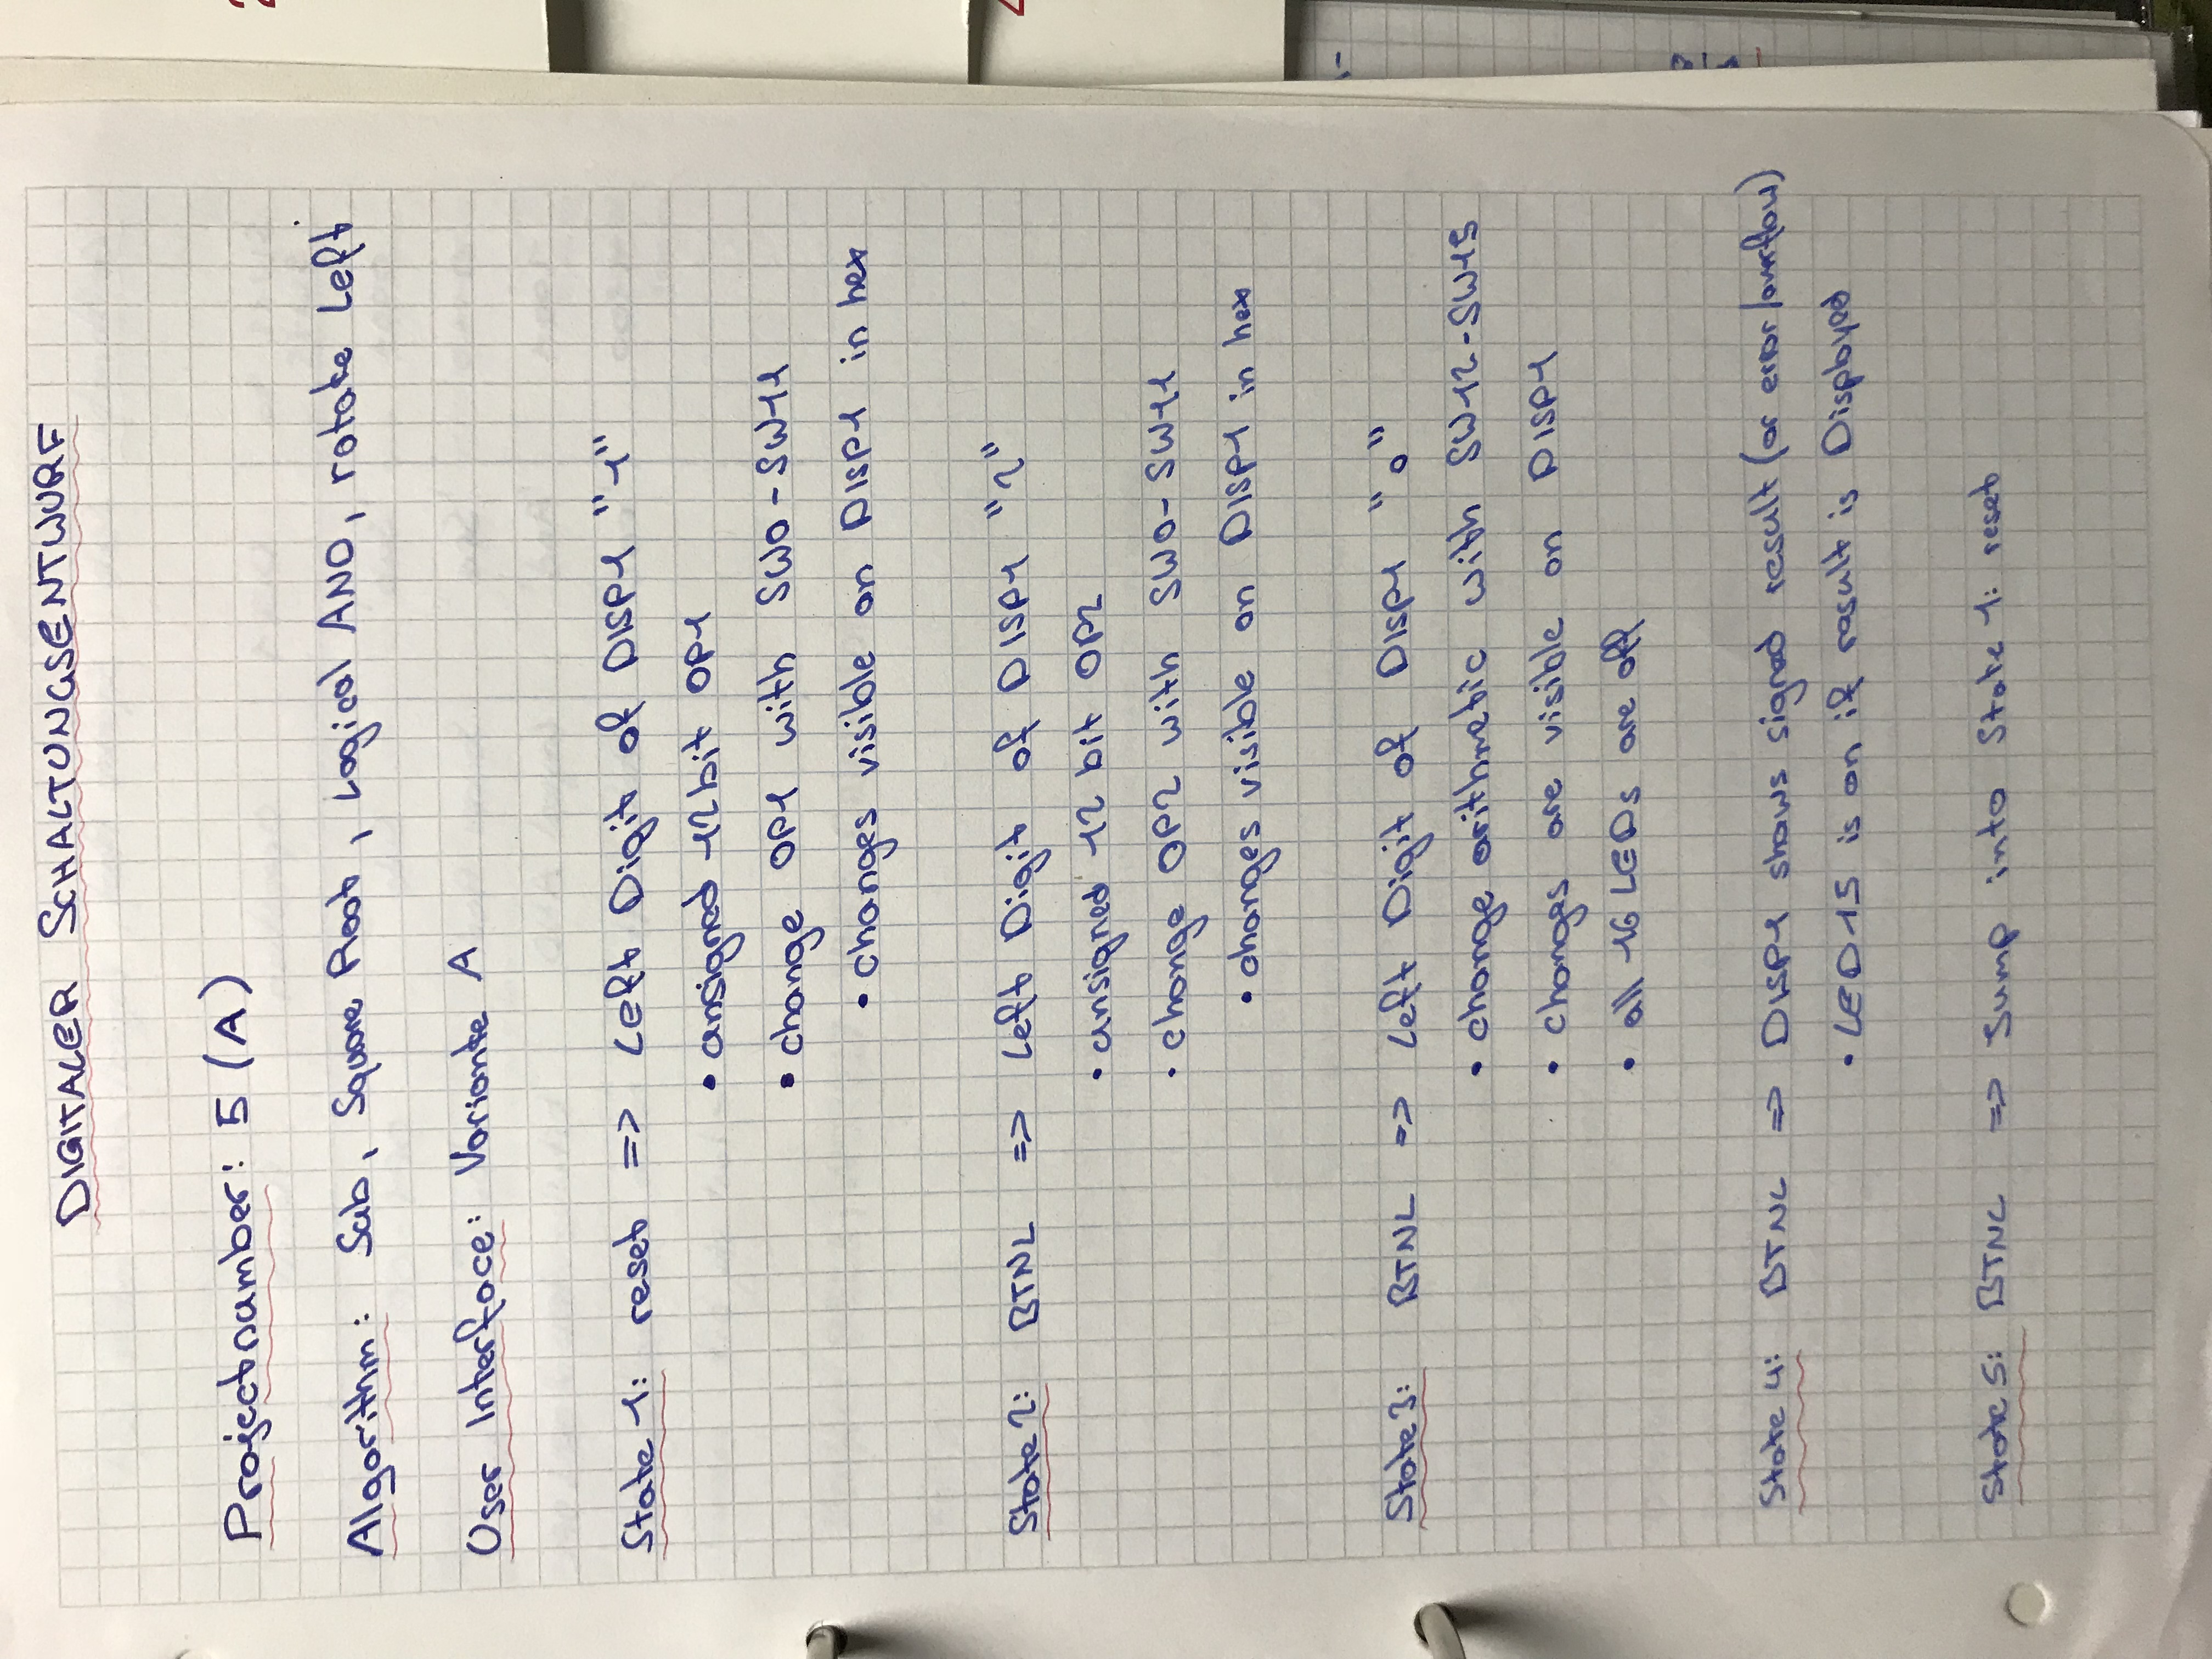 DIGITALER SCHALTUNGSENTWURF
Projectnumber: 5 (A)
Algorithm: Sub, Square Root, Logical AND, rotate Left
User Interface: Variante A
State 1: reset => Left Digit of DISP1 "1"
• unsigned 12bit OP1
• change OP1 with SW0-SW11
• changes visible on DISP1 in hex
State 2: BTNL => Left Digit of DISP1 "2"
• unsigned 12 bit OP2
• change OP2 with SW0-SW11
• changes visible on DISP1 in hex
State 3: BTNL => Left Digit of DISP1 "o"
• change arithmetic with SW12-SW15
• changes are visible on DISP1
• all 16 LEDs are off
State 4: BTNL => DISP1 shows signed result (or error/overflow)
• LED15 is on if result is Displayed
State 5: BTNL => Jump into State 1: reset